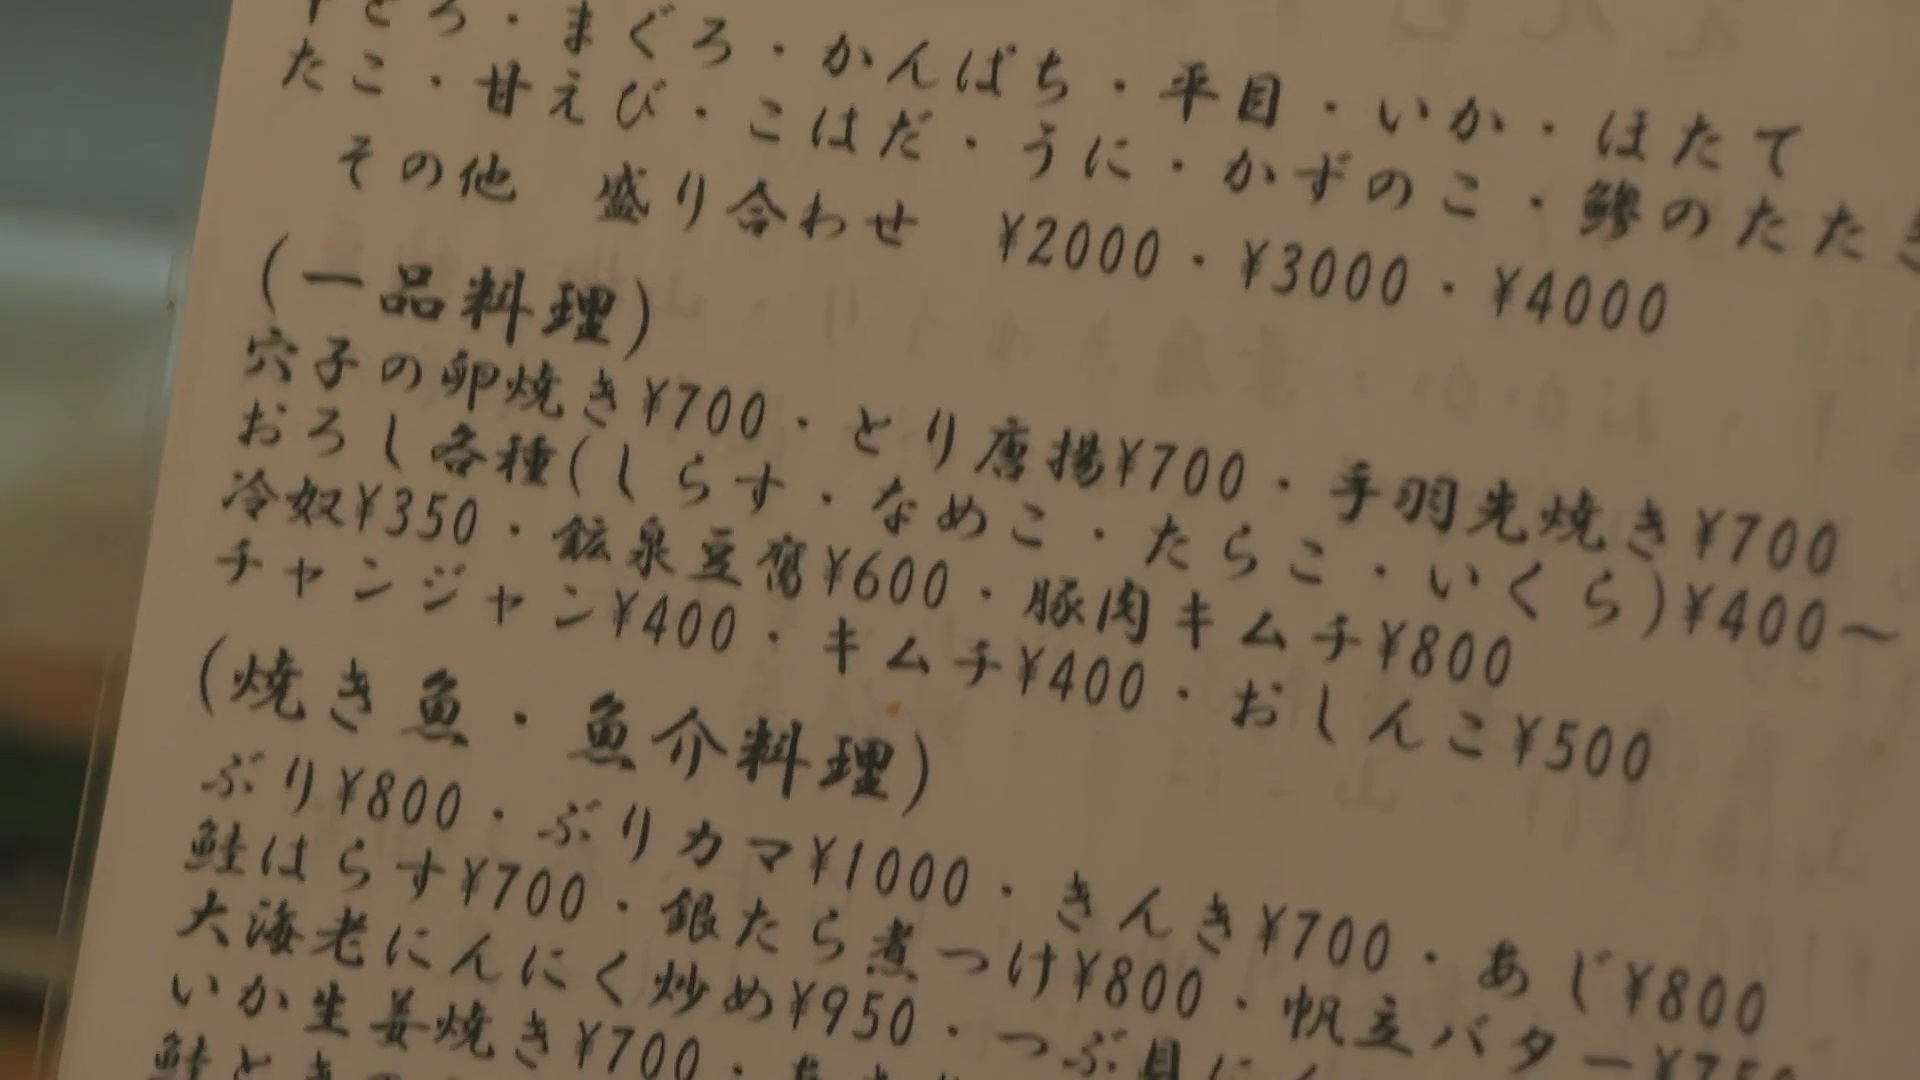 とろ・まぐろ・かんぱち・平目・いか・ほたて
たこ・甘えび・こはだ・うに・かずのこ・鯵のたたき
その他 盛り合わせ ¥2000・¥3000・¥4000
(一品料理)
穴子の卵焼き¥700・とり唐揚¥700・手羽先焼き¥700
おろし各種(しらす・なめこ・たらこ・いくら)¥400~
冷奴¥350・鉱泉豆腐¥600・豚肉キムチ¥800
チャンジャン¥400・キムチ¥400・おしんこ¥500
(焼き魚・魚介料理)
ぶり¥800・ぶりカマ¥1000・きんき¥700・あじ¥800
鮭はらす¥700・銀たら煮つけ¥800・帆立バター¥750
大海老にんにく炒め¥950・つぶ貝に
いか生姜焼き¥700・
鮭と